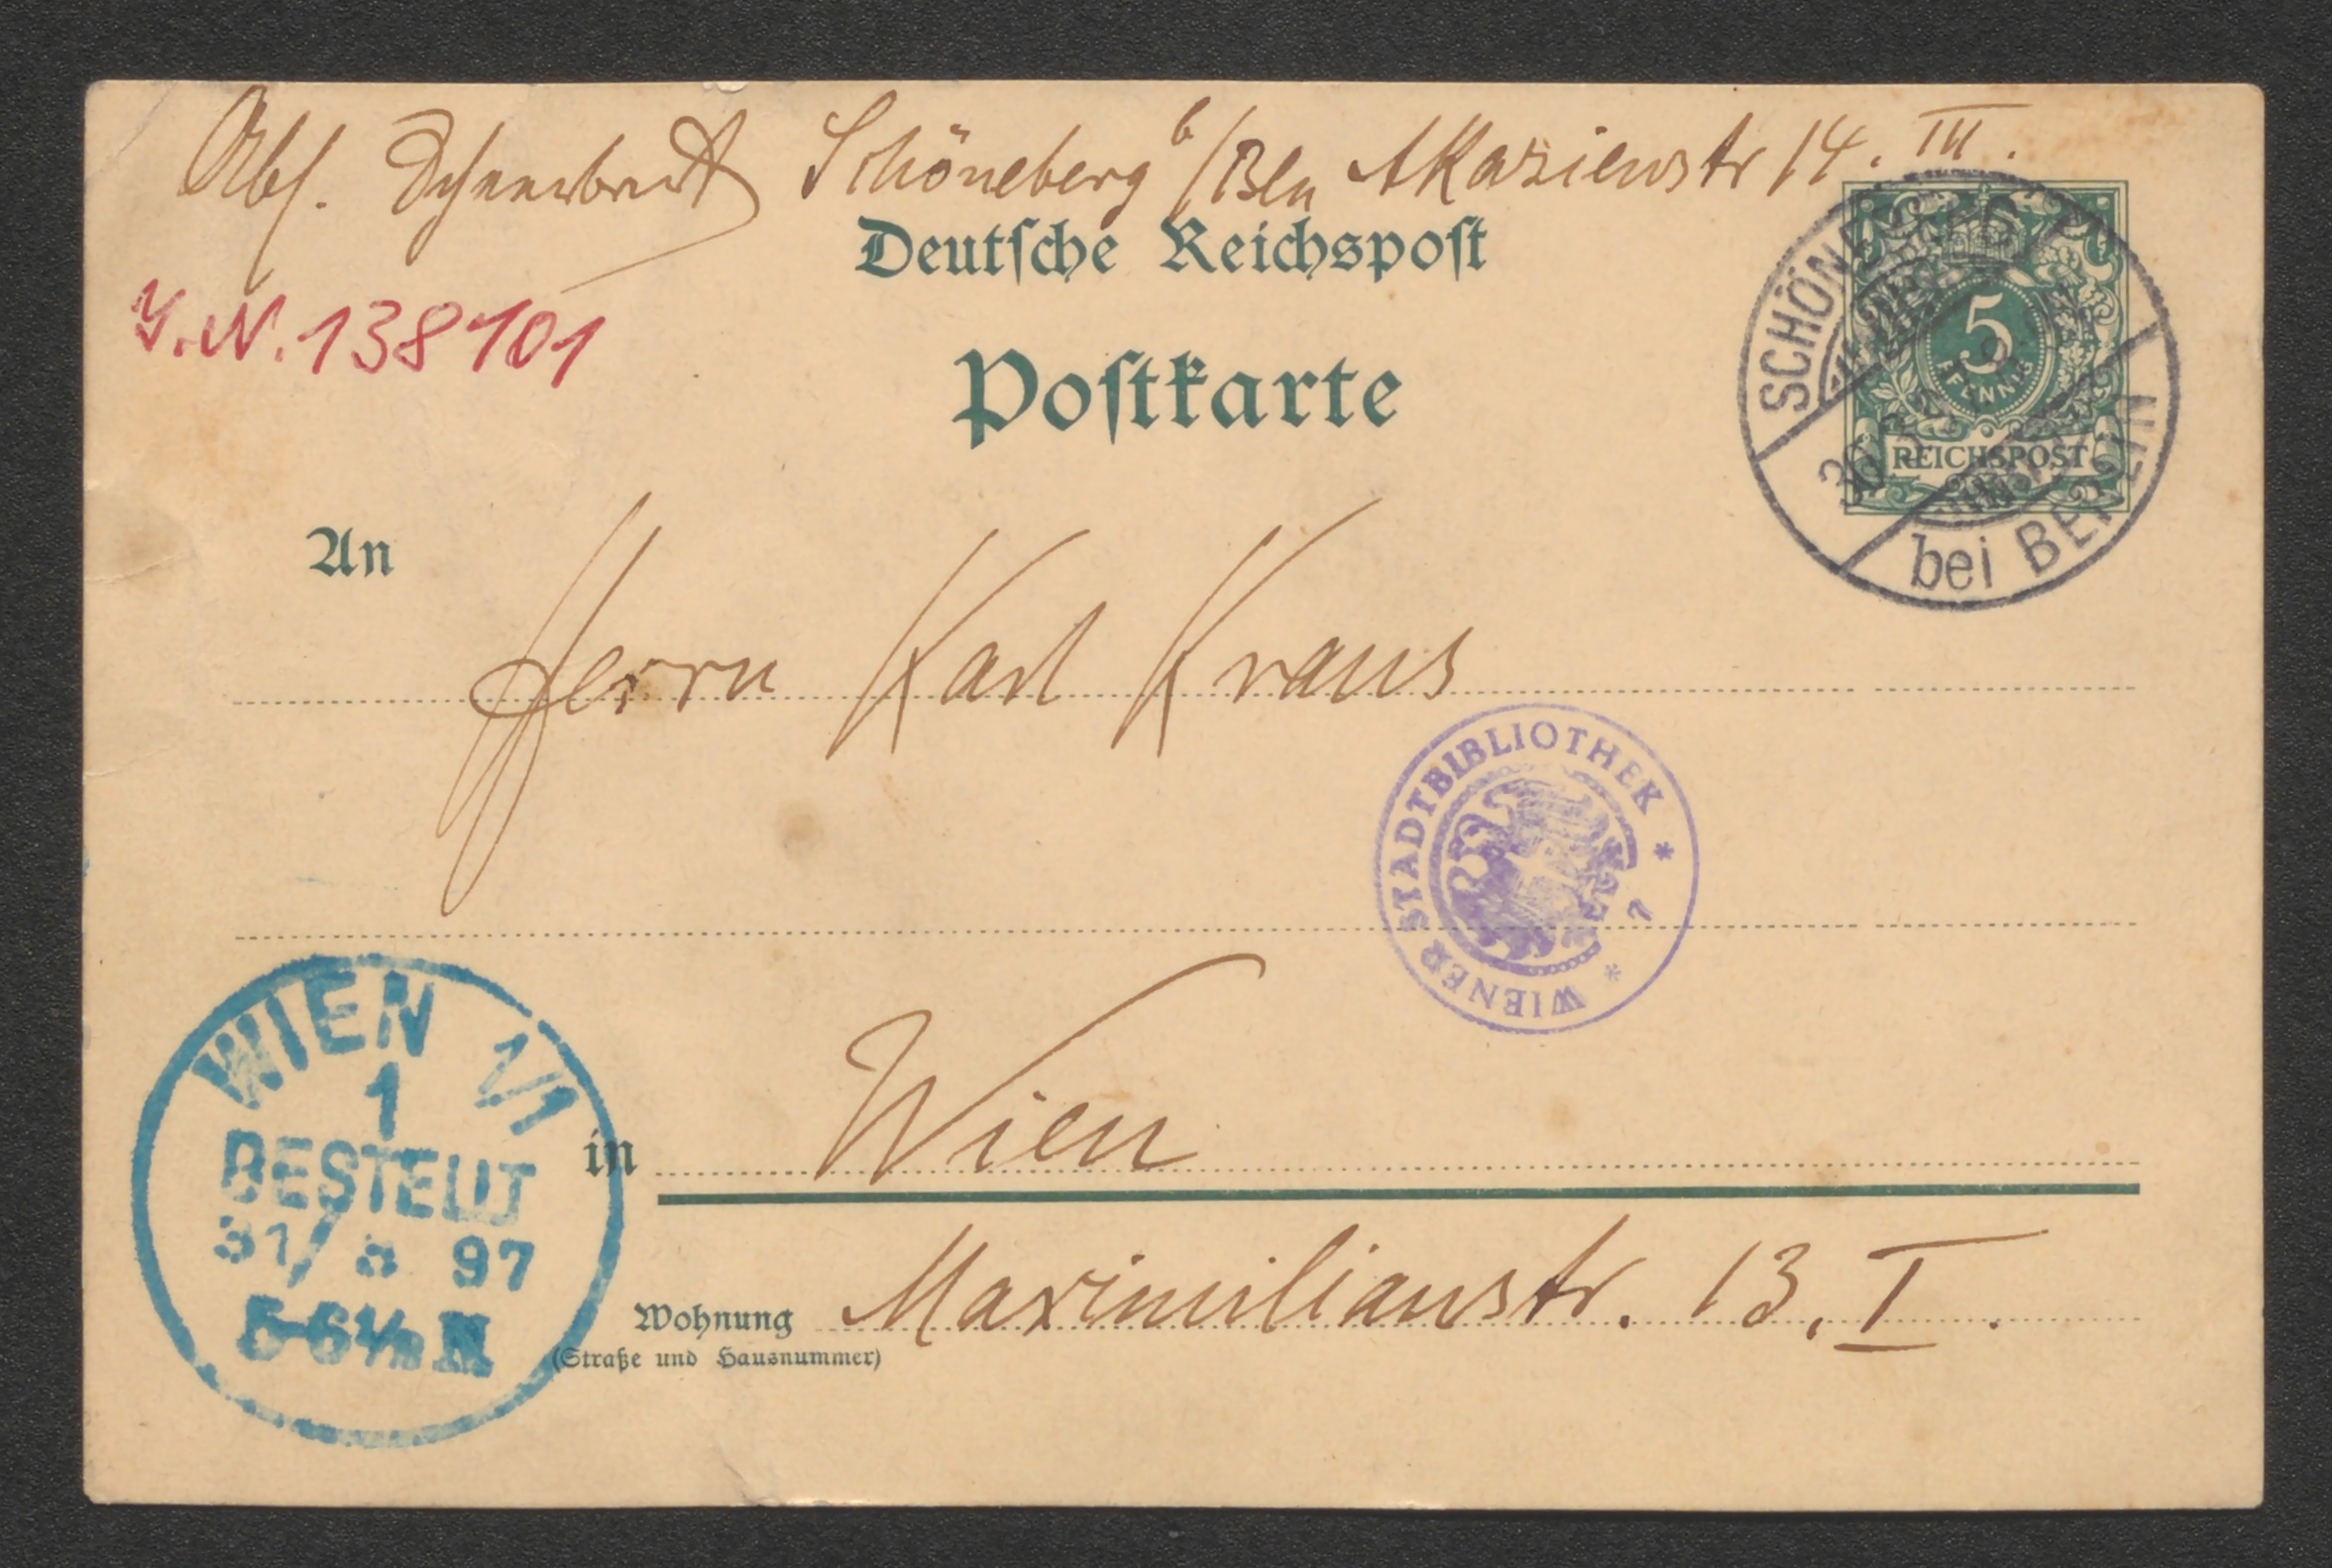 Abs. Scheerbart Schöneberg b/Bln Akazienstr 14. III.
Deutsche Reichspost
J.N. 138101
Postkarte
SCHÖNEBERG
bei BERLIN
5
PFENNIG
REICHSPOST
An
Herrn Karl Kraus
WIENER STADTBIBLIOTHEK * 7 *
WIEN 1/1
1
BESTELLT
31/8 97
5-6½ N
in Wien
Wohnung Maximilianstr. 13, I.
(Straße und Hausnummer)